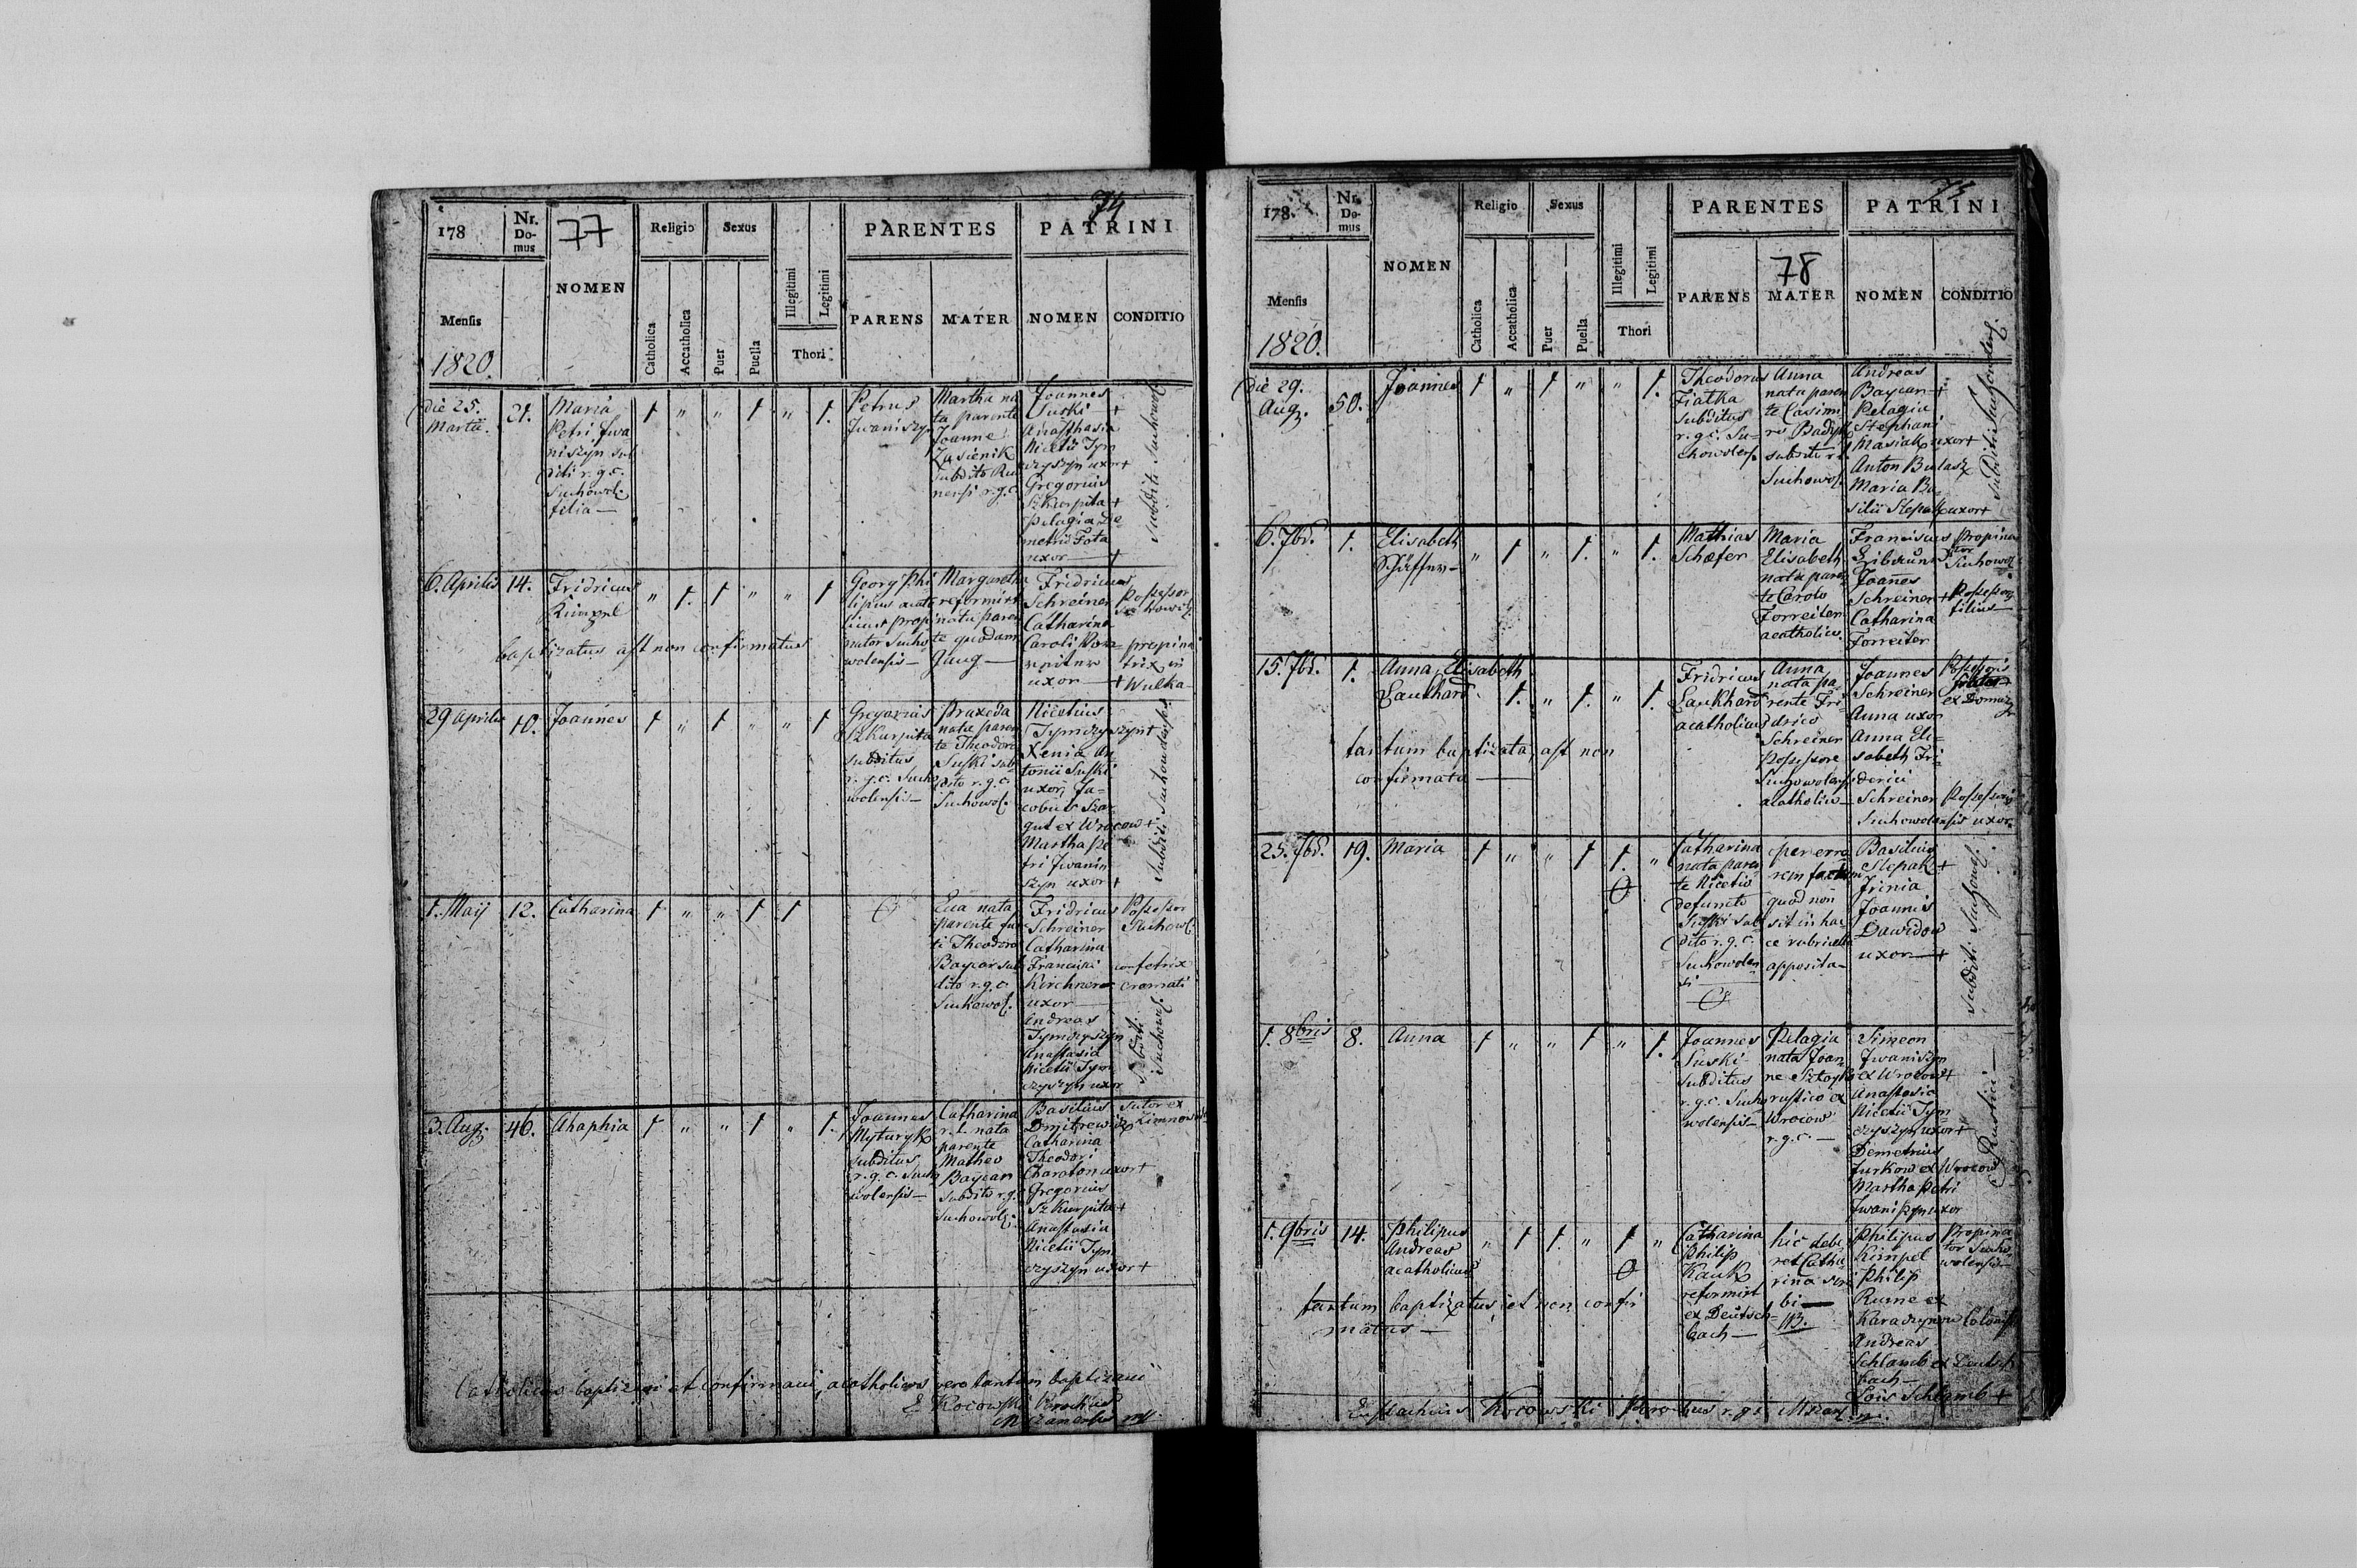 74
178
Nr.
Do-
mus
77
NOMEN
Religio
Sexus
Catholica
Accatholica
Puer
Puella
Illegitimi
Legitimi
Thori
PARENTES
PARENS
MATER
PATRINI
NOMEN
CONDITIO
Mensis
1820.
die 25.
Martii.
21.
Maria
Petri Iwa
niszyn sub
diti r. g. c.
Suchowol.
filia —
1 " " 1 " 1.
Petrus
Iwaniszyn
Martha na
ta parente
Joanne
Zasienik
subdito
r. g. c.
Joannes
Suski +
Anasthasia
Nicetii Tym
czyszyn uxor +
Gregorius
Szkurpita +
Pelagia De
metrii Fota
uxor — +
Subditi Suchowol.
6. Aprilis
14.
Fridricus
Kimpel
" 1. 1 " " 1
baptizatus ast non confirmatus
Georg Phi
lipus acato
licus propi
nator Sucho
wolensis —
Margaretha
reformirt
nata paren
te quodam
Jaug —
Fridricus
Schreiner
Catharina
Caroli
uxor — +
Possessor
propina
trix in
Wulka
29 Aprilis
10.
Joannes
1 " 1 " " 1
Gregorius
Szkurpita
subditus
r. g. c. Sucho
wolensis —
Praxeda
nata paren
te Theodoro
Suski sub
dito r. g. c.
Suchowol.
Nicetius
Tymczyszyn +
Xenia An
tonii Suski
uxor, Ja-
cobus
ex Wrocow +
Martha Pe
tri Iwanis
szyn uxor +
Subditi Suchowolenses
1. Maij
12.
Catharina
1 " " 1 1
Eva nata
parente
Theodoro
Baycar sub
dito r. g. c.
Suchowol.
Fridricus
Schreiner
Catharina
Francisci
Kirchner
uxor —
Andreas
Tymczyszyn
Anastasia
Nicetii Tym
czyszyn uxor
Possessor
Suchowol.
cremati
Subditi
Suchowol.
3. Aug.
46.
Ahaphia
1 " " 1 " 1.
Joannes
Myturyk
subditus
r. g. c. Sucho
wolensis —
Catharina
r. l. nata
parente
Matheo
Baycar
subdito r. g. c.
Suchowol.
Basilius
Dmitrewicz
Catharina
Theodori
Charaton uxor +
Gregorius
Szkurpita +
Anastasia
Nicetii Tym
czyszyn uxor +
Sutor ex
Zimnowoda
Catholicos baptizavi et confirmavi, acatholicos vero tantum baptizavi
E Kocowski Parochus
75
178.
Nr.
Do-
mus
NOMEN
Religio
Sexus
Catholica
Accatholica
Puer
Puella
Illegitimi
Legitimi
Thori
PARENTES
78
PARENS
MATER
PATRINI
NOMEN
CONDITIO
Mensis
1820.
die 29.
Aug.
50.
Joannes
1 " 1 " " 1.
Theodorus
Fiatka
subditus
r. g. c. Su-
chowolens.
Anna
nata paren
te Casimi
ro Badyk
subdito
Suchowol.
Andreas
Baycar +
Pelagia
Stephani
Masiak uxor +
Anton Bulasz
Maria Ba-
silii Stepak uxor +
Subditi Suchowolens.
6. 7br.
1.
Elisabeth
Schäffer —
" 1 " 1. " 1.
Mathias
Schæfer
Maria
Elisabeth
nata paren
te Carolo
Forreiter
acatholico.
Franciscus
Joannes
Schreiner +
Catharina
Forreiter
Propina
tor
Suchowol.
Possessoris
filius —
15. 7br.
1.
Anna Elisabeth
Laukhard.
1. " 1. " 1.
tantum baptizata, ast non
confirmata —
Fridricus
Laukhard
acatholicus
Anna
nata pa
rente Fri
drico
Schreiner
possessore
Suchowolensi
acatholico —
Joannes
Schreiner
Anna uxor
Anna Eli-
sabeth Fri-
derici
Schreiner
Suchowolensis uxor.
Possessoris
Possessoris
25. 7br.
19.
Maria
1 " " 1 1. "
Catharina
nata paren
te Nicetio
defuncto
Suski sub
dito r. g. c.
Suchowolen
si
per erro
rem factum
quod non
sit in hac
ce rubricella
apposita —
Basilius
Stepak +
Irinia
Joannis
Dawidow
uxor — +
Subditi Suchowol.
1. 8bris
8.
Anna
1 " " 1 " 1.
Joannes
Suski
subditus
r. g. c. Sucho
wolensis —
Pelagia
nata Joan
ne
rustico ex
Wrocow
r. g. c. —
Simeon
Iwaniszyn
ex Wrocow +
Anastasia
Nicetii Tym
czyszyn uxor +
Demetrius
Jurkow ex Wrocow
Martha Petri
Iwaniszyn uxor
Rustici —
1. 9bris
14.
Philipus
Andreas
acatholicus
" 1 1. " 1 "
tantum baptizatus, et non confir
matus —
Catharina
Philip
Kauk
reformirt
ex Deutsch-
bach —
hic debe
ret Catha
rina scri
bi —
Philipus
Kimpel
Philip
Rume ex
Karaczynow Colonist
Andreas
Schlamb ex Deutsch
bach —
Lois Schlamb +
Propina
tor Sucho
wolensis
Eustachius Kocowski Parochus r. g. c.